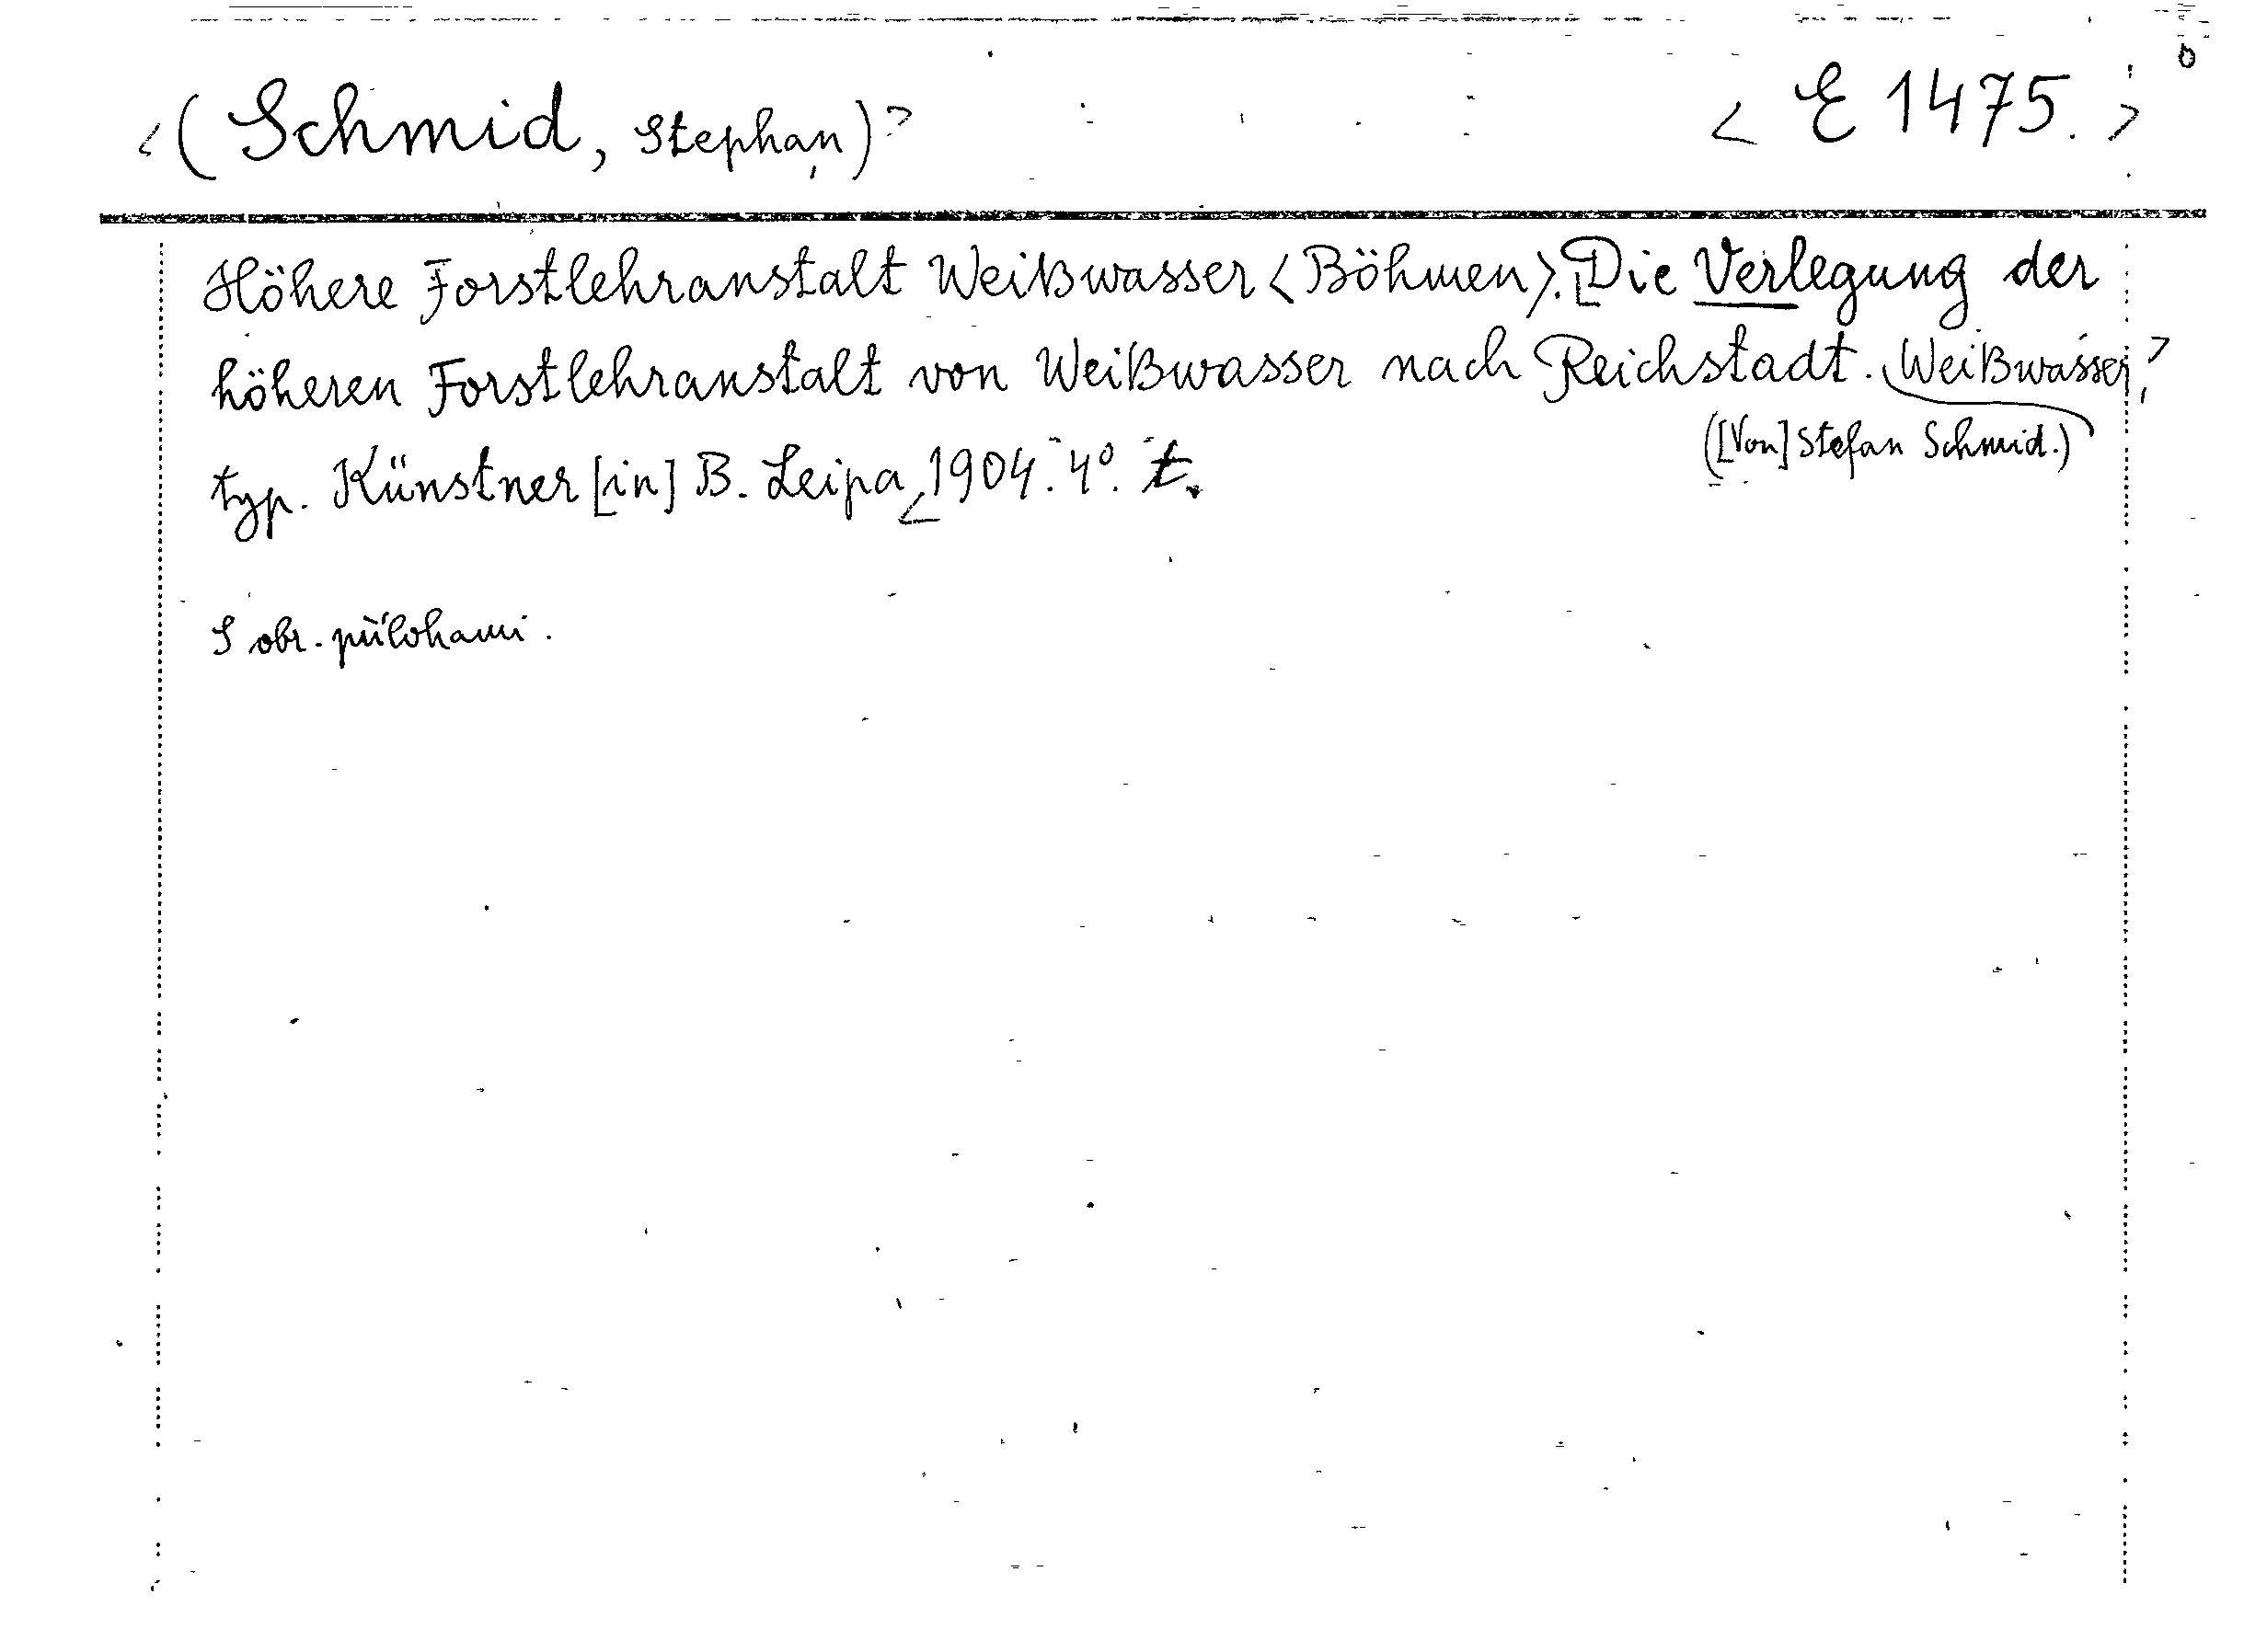 (Schmid, Stephan) < E 1475. >
Höhere Forstlehranstalt Weißwasser <Böhmen>. Die Verlegung der
höheren Forstlehranstalt von Weißwasser nach Reichstadt. Weißwasser,
([Von] Stefan Schmid.)
typ. Künstner [in] B. Leipa, 1904. 4°. t.
S obr. přílohami.